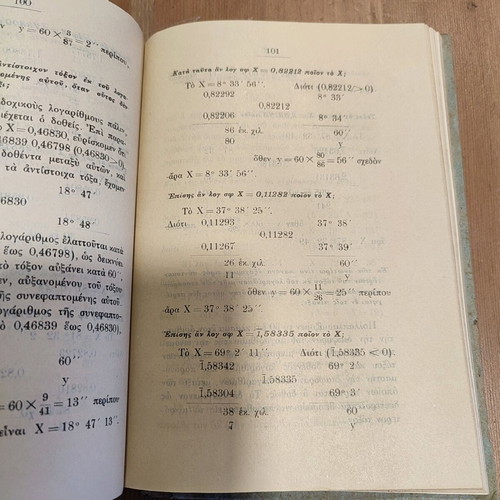 100
y = 60 × 3/87 = 2″ περίπου
ἀντίστοιχον τόξον ἐκ τοῦ λογα-
δοχικοὺς λογαρίθμους πάλιν
μέχεται ὁ δοθείς. Ἐπὶ παρα-
ὸ X = 0,46830, εὑρίσκομεν ὅτι
46839 0,46798 (0,46830 > 0).
δοθέντα μεταξὺ αὐτῶν, καὶ
τὰ ἀντίστοιχα τόξα, ἔχομεν
18° 47′
6830
18° 48′
λογάριθμος ἐλαττοῦται κατὰ
ἕως 0,46798), ὡς δεικνύει
τὸ τόξον αὐξάνει κατὰ 60″.
εν, αὐξανομένου τοῦ τόξου
τῆς συνεφαπτομένης αὐτοῦ.
λογάριθμος τῆς συνεφαπτο-
ὸ 0,46839 ἕως 0,46830),
60″
y
= 60 × 9/41 = 13″ περίπου
εἶναι X = 18° 47′ 13″.
101
Κατὰ ταῦτα ἂν λογ σφ X = 0,82212 ποῖον τὸ X;
Τὸ X = 8° 33′ 56″. Διότι (0,82212 > 0).
0,82292 8° 33′
0,82212
0,82206 8° 34′
86 ἐκ. χιλ. 60″
80 y
ὅθεν y = 60 × 80/86 = 56″ σχεδὸν
ἄρα X = 8° 33′ 56″.
Ἐπίσης ἂν λογ σφ X = 0,11282 ποῖον τὸ X;
Τὸ X = 37° 38′ 25″.
Διότι 0,11293 37° 38′
0,11282
0,11267 37° 39′
26 ἐκ. χιλ. 60″
11 y
ὅθεν y = 60 × 11/26 = 25″ περίπου
ἄρα X = 37° 38′ 25″.
Ἐπίσης ἂν λογ σφ X = 1̄,58335 ποῖον τὸ X;
Τὸ X = 69° 2′ 11″. Διότι (1̄,58335 < 0).
1̄,58342 69° 2′
1̄,58335
1̄,58304 69° 3′
38 ἐκ. χιλ. 60″
7 y